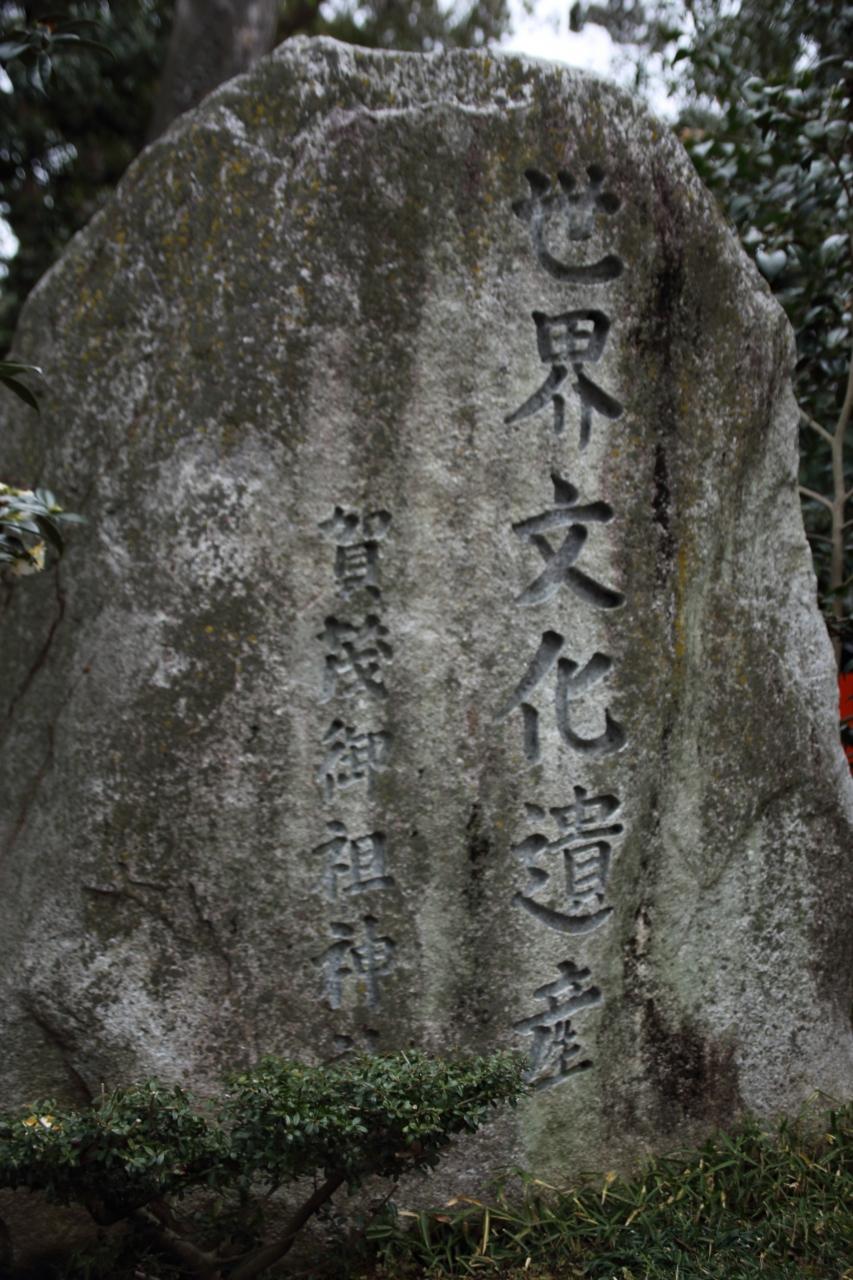 世界文化遺産
賀茂御祖神